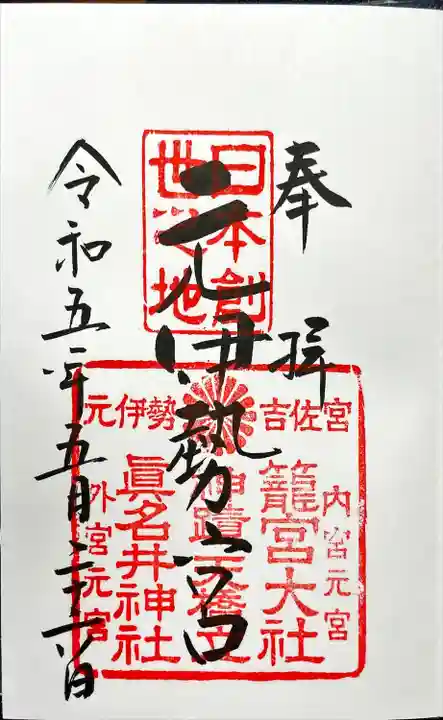 奉拝
日本創
世之地
元伊勢宮
吉佐宮
元伊勢
内宮元宮
籠宮大社
神蹟天橋立
眞名井神社
外宮元宮
令和五年五月二十六日